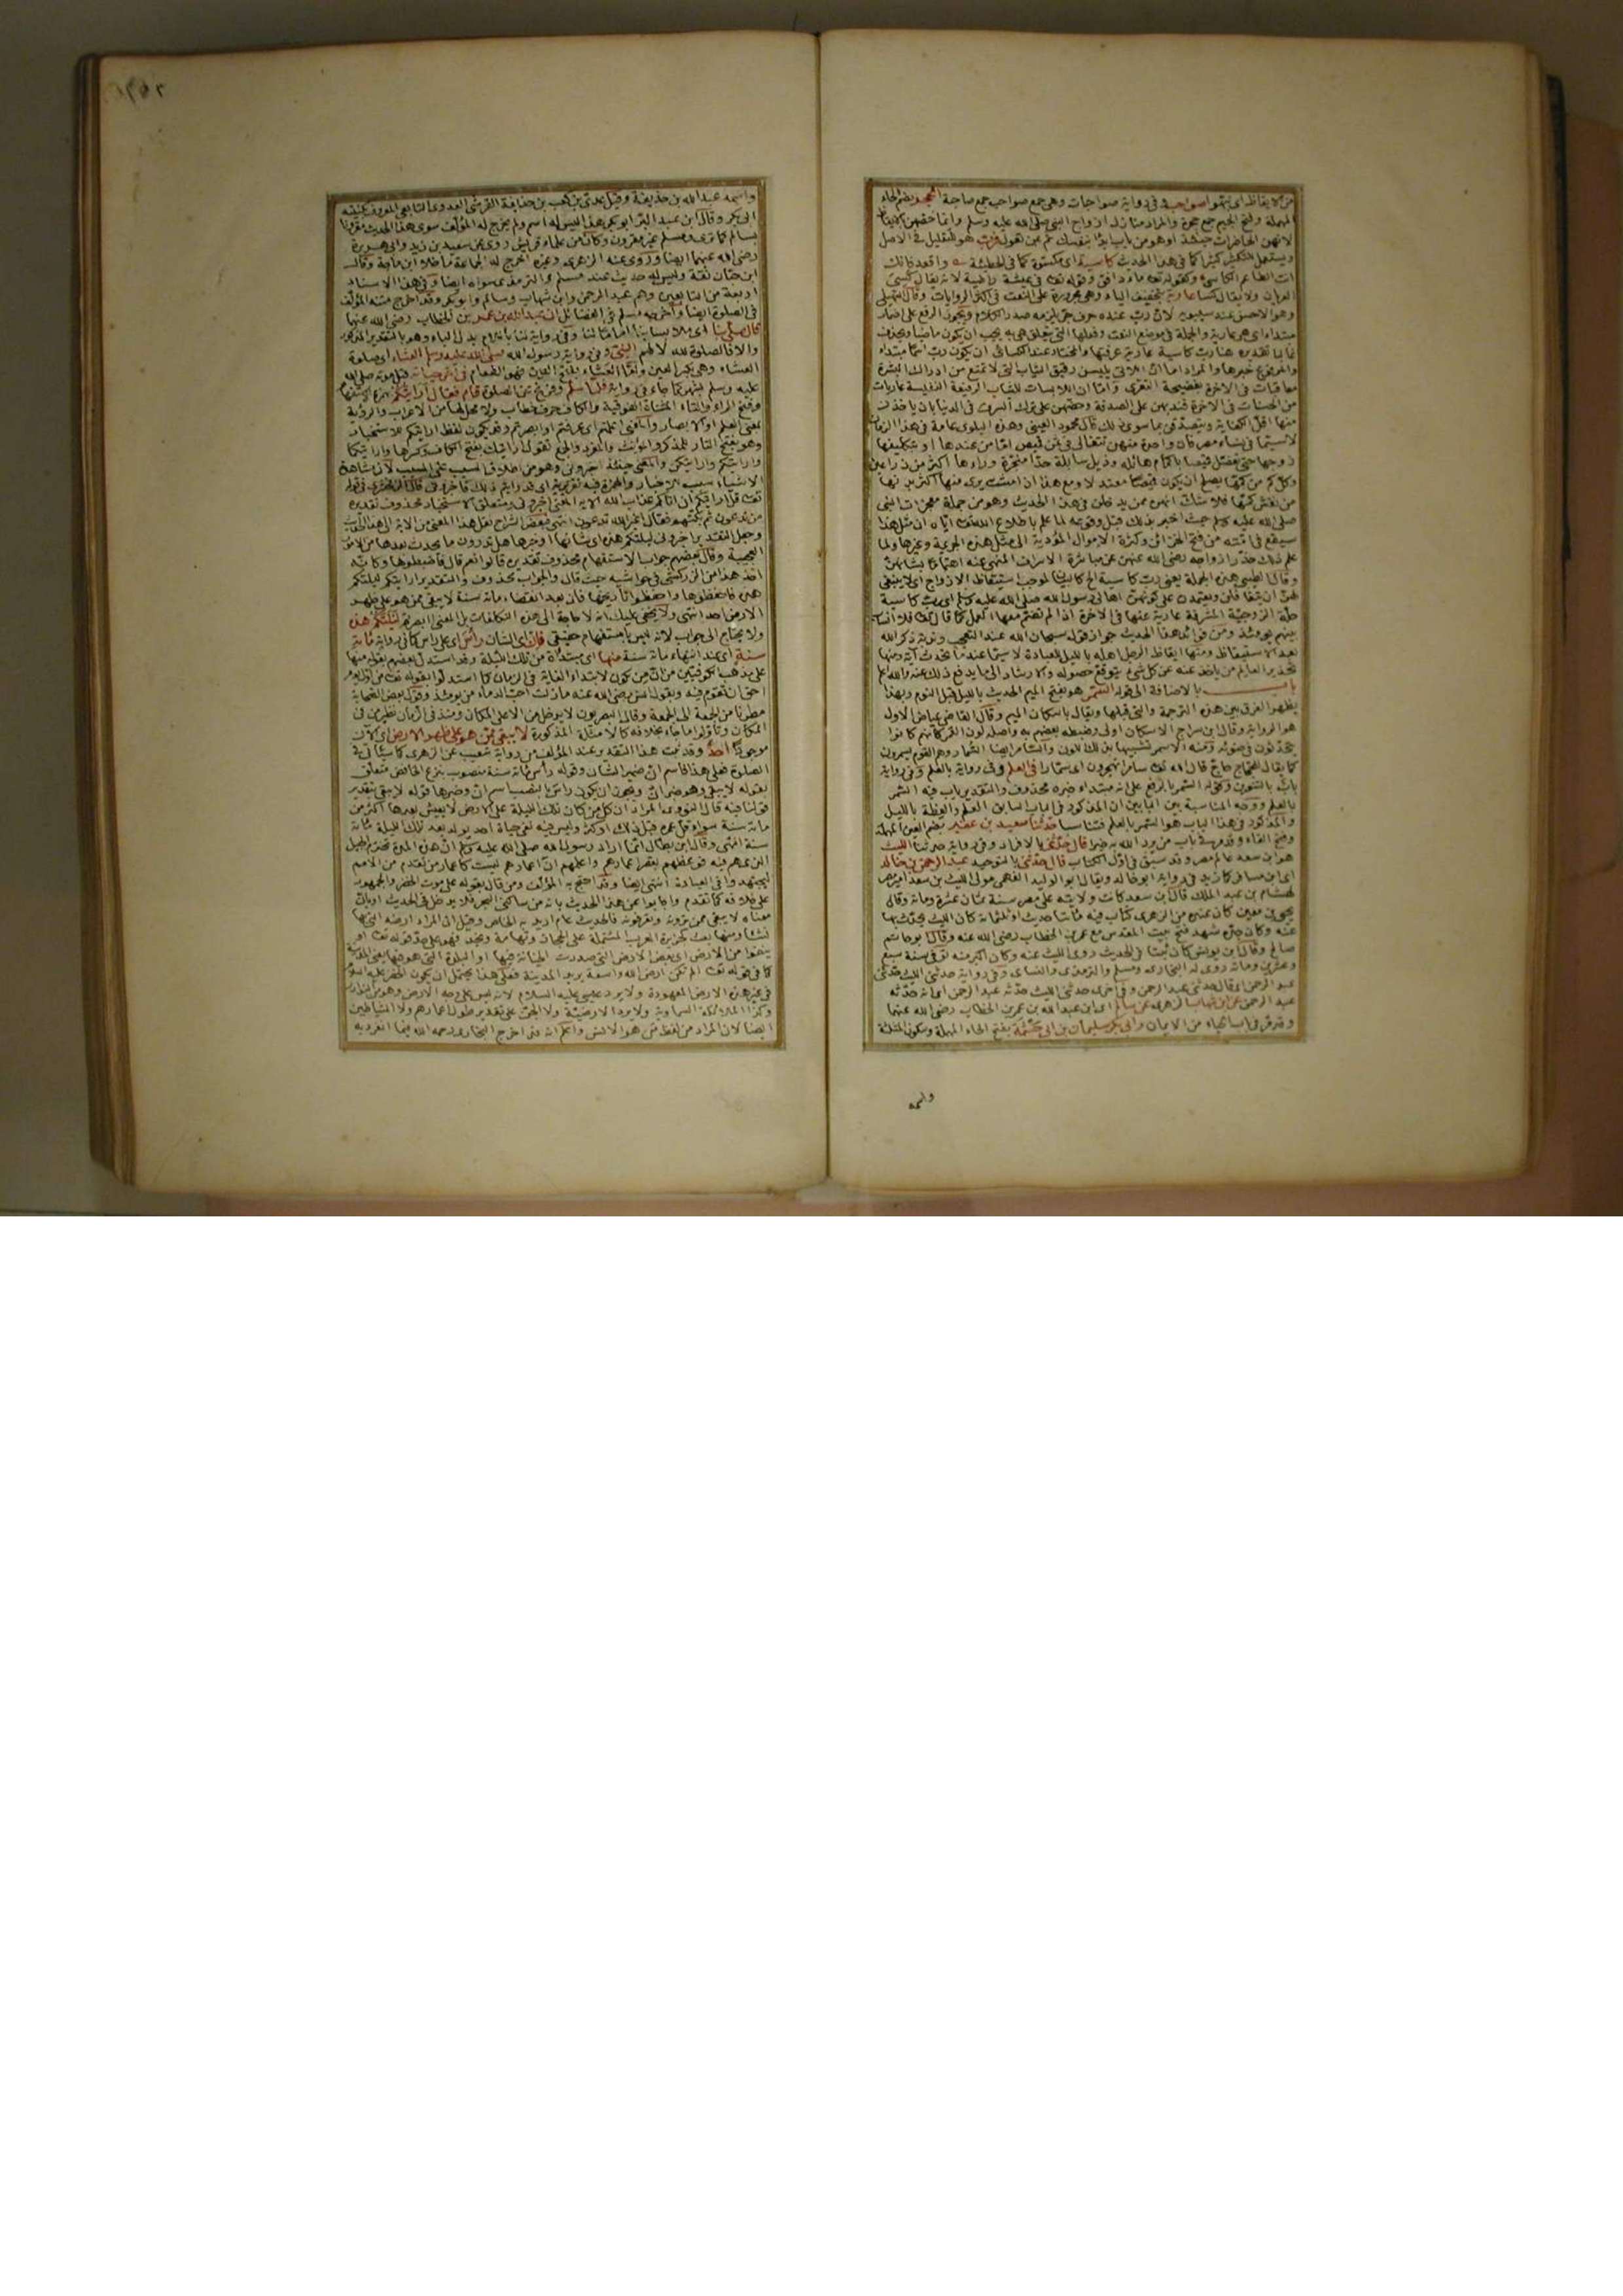 من الايقاظ اى نبهوا صواحب وفى رواية صواحبات وهى جمع صواحب جمع صاحبة الحجر بضم الحاء
المهملة وفتح الجيم جمع حجرة والمراد منازل ازواج النبى صلى الله عليه وسلم وانما خصهن بالايقاظ
لانهن الحاضرات حينئذ او هو من باب ابدأ بنفسك ثم بمن تعول فرب هو للتقليل فى الاصل
ويستعمل للتكثير كثيرا كما فى هذا الحديث كاسية اى مكسوة كما فى الحطيئة واقعد فانك
انت الطاعم الكاسى وكقوله تعالى ماء دافق وقوله تعالى فى عيشة راضية لانه يقال كسى
العريان ولا يقال كسا عارية بتخفيف الياء وهى مجرورة على النعت فى اكثر الروايات وقال السهيلى
وهو الاحسن عند سيبويه لان رب عنده حرف جر يلزم صدر الكلام ويجوز الرفع على اضمار
مبتداء اى هى عارية والجملة فى موضع النعت وفعلها الذى يتعلق هى به يجب ان يكون ماضيا ويحذف
غالبا تقديره هنا رب كاسية عارية عرفتها والمختار عند الكسائى ان يكون رب اسما مبتداء
والمرفوع خبرها والمراد اما ان اللاتى يلبسن رقيق الثياب التى لا تمنع من ادراك البشرة
معاقبات فى الاخرة بفضيحة التعرى واما ان اللابسات للثياب الرفيعة النفيسة عاريات
من الحسنات فى الاخرة فندبهن على الصدقة وحضهن على ترك السرف فى الدنيا بان ياخذن
منها اقل الكفاية ويتصدقن بما سوى ذلك قال محمود العينى وهذه البلوى عامة فى هذا الزمان
لا سيما فى نساء مصر فان واحدة منهن تتغالى فى ثمن قميص اما من عندها او بتكليفها
زوجها حتى تفصل قميصا باكمام هائلة وذيل سابلة جدا منجرة وراءها اكثر من ذراعين
وكل كم من كميها يصلح ان يكون قميصا معتدلا ومع هذا اذا مشت يرى منها اكثر بدنها
من نفس كمها فلا شك انهن ممن يدخلن فى هذا الحديث وهو من جملة معجزات النبى
صلى الله عليه وسلم حيث اخبر بذلك قبل وقوعه لما علم باطلاع الله تعالى اياه ان مثل هذا
سيقع فى امته من فتح الخزائن وكثرة الاموال المؤدية الى مثل هذه الجريمة وغيرها ولما
علم ذلك حذر ازواجه رضى الله عنهن عن مباشرة الاسراف المنهى عنه اهتماما بشانهن
وقال الطيبى هذه الجملة يعنى رب كاسية الخ كالبيان لموجب استيقاظ الازواج اى لا ينبغى
لهن ان يتغافلن ويعتمدن على كونهن اهالى رسول الله صلى الله عليه وسلم اى رب كاسية
حلة الزوجية المشرفة عارية عنها فى الاخرة اذا لم تضم معها العمل كما قال تعالى فلا انساب
بينهم يومئذ ومن فوائد هذا الحديث جواز قول سبحان الله عند التعجب وندبية ذكر الله
بعد الاستيقاظ ومنها ايقاظ الرجل اهله بالليل للعبادة لا سيما عند ما تحدث آية ومنها
تحذير العالم من ياخذ عنه عن كل شئ يتوقع حصوله والارشاد الى ما يدفع ذلك عنه والله اعلم
باب بالاضافة الى قوله السمر هو بفتح الميم الحديث بالليل قبل النوم وبهذا
يظهر الفرق بين هذه الترجمة والتى قبلها ويقال باسكان الميم وقال القاضى عياض الاول
هو الرواية وقال ابن سراج الاسكان اولى وضبطه بعضهم به واصله لون القمر لانهم كانوا
يتحدثون فى ضوئه ومنه الاسمر لشبهه بذلك اللون والسامر ايضا السمار وهم القوم يسمرون
كما يقال للحجاج حاج قال الله تعالى سامرا تهجرون اى سمارا فى العلم وفى رواية بالعلم وفى رواية
باب بالتنوين وقوله السمر بالرفع على انه مبتداء خبره محذوف والتقدير باب فيه السمر
بالعلم ووجه المناسبة بين البابين ان المذكور فى الباب السابق العلم والعظة بالليل
والمذكور فى هذا الباب هو السمر بالعلم فتناسبا حدثنا سعيد بن عفير بضم العين المهملة
وفتح الفاء وقد مر فى باب من يرد الله به خيرا قال حدثنى بالافراد وفى رواية حدثنا الليث
هو ابن سعد عالم مصر وقد سبق فى اول الكتاب قال حدثنى بالتوحيد عبد الرحمن بن خالد
اى ابن مسافر كما زيد فى رواية ابو خالد ويقال ابو الوليد الفهمى مولى الليث بن سعد امير مصر
لهشام بن عبد الملك قال ابن سعد كانت ولايته على مصر سنة ثمان عشرة ومائة وقال
يحيى بن معين كان عنده من الزهرى كتاب فيه مائتا حديث او ثلثمائة كان الليث يحدث بها
عنه وكان جده شهد فتح بيت المقدس مع عمر بن الخطاب رضى الله عنه وقال ابو حاتم
صالح وقال ابن يونس كان ثبتا فى الحديث روى الليث عنه وكان اكبر منه توفى سنة سبع
وعشرين ومائة روى له البخارى ومسلم والترمذى والنسائى وفى رواية حدثنى الليث حدثنى
عبد الرحمن اى قال حدثنى عبد الرحمن وفى اخرى حدثنى الليث حدثه عبد الرحمن اى انه حدثه
عبد الرحمن عن ابن شهاب الزهرى عن سالم اى ابن عبد الله بن عمر بن الخطاب رضى الله عنهما
وقد مر فى باب الحياء من الايمان وابى بكر سليمان بن ابى حثمة بفتح الحاء المهملة وسكون المثلثة
واسمه
واسمه عبد الله بن حذيفة وقيل عدى بن كعب بن حذافة القرشى العدوى التابعى المعروف بكنيته
ابى بكر وقال ابن عبد البر ابو بكر هذا ليس له اسم ولم يخرج له المؤلف سوى هذا الحديث مقرونا
بسالم كما ترى ومسلم غير مقرون وكان من علماء قريش روى عن سعيد بن زيد وابى هريرة
رضى الله عنهما ايضا وروى عنه الزهرى وغيره اخرج له الجماعة ما خلا ابن ماجة وقال
ابن حبان ثقة وليس له حديث عند مسلم والترمذى سواه ايضا وفى هذا الاسناد
اربعة من التابعين وهم عبد الرحمن وابن شهاب وسالم وابو بكر وقد اخرج متنه المؤلف
فى الصلوة ايضا واخرجه مسلم فى الفضائل ان عبد الله بن عمر بن الخطاب رضى الله عنهما
قال صلى بنا
والا فالصلوة لله لا لهم النبى وفى رواية رسول الله صلى الله عليه وسلم العشاء اى صلوة
العشاء وهى بكسر العين واما العشاء بفتح العين فهو الطعام فى آخر حياته قبل موته صلى الله
عليه وسلم بشهر كما جاء فى رواية فلما سلم وفرغ من الصلوة قام فقال ارايتكم بهمزة الاستفهام
وفتح الراء والتاء المثناة الفوقية والكاف حرف خطاب ولا محل لها من الاعراب والرؤية
بمعنى العلم او الابصار والمعنى اعلمتم او ابصرتم وقد يكون لفظ ارايتكم للاستخبار
وهو بفتح التاء للمذكر والمؤنث والمفرد والجمع تقول ارايتك بفتح الكاف وكسرها وارايتكما
وارايتكم وارايتكن والمعنى حينئذ اخبرونى وهو من اطلاق السبب على المسبب لان مشاهدة
الاشياء سبب الاخبار والهمزة فيه تقريرية اى قد رايتم ذلك فاخبرونى قال الزمخشرى فى قوله
تعالى قل ارايتكم ان اتاكم عذاب الله الآية المعنى اخبرونى ومتعلق الاستخبار محذوف تقديره
من تدعون ثم بكتهم فقال اغير الله تدعون انتهى
وجعل التقدير اخبرونى ليلتكم هذه اى شانها او خبرها هل تدرون ما يحدث بعدها من الامور
العجيبة وقال بعضهم جواب الاستفهام محذوف تقديره قالوا نعم قال فاضبطوها وكانه
اخذ هذا من الزركشى فى حواشيه حيث قال والجواب محذوف والتقدير ارايتكم ليلتكم
هذه فاحفظوها واحفظوا تاريخها فان بعد انقضاء مائة سنة لا يبقى ممن هو على ظهر
الارض احد انتهى ولا يخفى عليك انه لا حاجة الى هذه التكلفات بل المعنى ابصرتم ليلتكم هذه
ولا يحتاج الى جواب لانه ليس باستفهام حقيقى فان اى الشان رأس اى على رأس كما فى رواية مائة
سنة اى عند انتهاء مائة سنة منها اى مبتدأة من تلك الليلة وقد استدل بعضهم بقوله منها
على مذهب الكوفيين من ان من تكون لابتداء الغاية فى الزمان كما استدلوا بقوله تعالى من اول يوم
احق ان تقوم فيه وبقول انس رضى الله عنه ما زلت احب الدباء من يومئذ وقول بعض الصحابة
مطرنا من الجمعة الى الجمعة وقال البصريون لا يدخل من الا على المكان ومنذ فى الزمان نظير من فى
المكان وتاولوا ما جاء بخلافه كالامثلة المذكورة لا يبقى ممن هو على ظهر الارض اى الآن
موجودا احد وقد ثبت هذا التقدير عند المؤلف من رواية شعيب عن الزهرى كما سياتى فى
الصلوة فعلى هذا فاسم ان ضمير الشان وقوله رأس مائة سنة منصوب بنزع الخافض متعلق
بقوله لا يبقى وهو خبر ان ويجوز ان يكون رأس بالنصب اسم ان وخبرها قوله لا يبقى بتقدير
قولنا فيه قال النووى المراد ان كل من كان تلك الليلة على الارض لا يعيش بعدها اكثر من
مائة سنة سواء قل عمره قبل ذلك او كثر وليس فيه نفى حياة احد يولد بعد تلك الليلة مائة
سنة انتهى وقال ابن بطال انما اراد رسول الله صلى الله عليه وسلم ان هذه المدة تخترم الجيل
الذى هم فيه فوعظهم بقصر اعمارهم واعلمهم ان اعمارهم ليست كاعمار من تقدم من الامم
ليجتهدوا فى العبادة انتهى ايضا وقد احتج به المؤلف ومن قال بقوله على موت الخضر والجمهور
على خلافه كما تقدم واجابوا عن هذا الحديث بانه من ساكنى البحر فلا يدخل فى الحديث او بان
معناه لا يبقى ممن ترونه وتعرفونه فالحديث عام اريد به الخاص وقيل ان المراد ارضه التى بها
نشأ ومنها بعث كجزيرة العرب المشتملة على الحجاز وتهامة ونجد فهو على حد قوله تعالى او
ينفوا من الارض اى بعض الارض التى صدرت الجناية فيها
كما فى قوله تعالى الم تكن ارض الله واسعة يريد المدينة فعلى هذا يحتمل ان يكون الخضر عليه السلام
فى غير هذه الارض المعهودة ولا يرد عيسى عليه السلام لانه ليس على وجه الارض
وكذا الملائكة السماوية ولا يرد الارضية ولا الجن على تقدير طول اعمارهم ولا الشياطين
ايضا لان المراد من لفظ من هو الانس واعلم انه قد اخرج البخارى رحمه الله فيما انفرد به